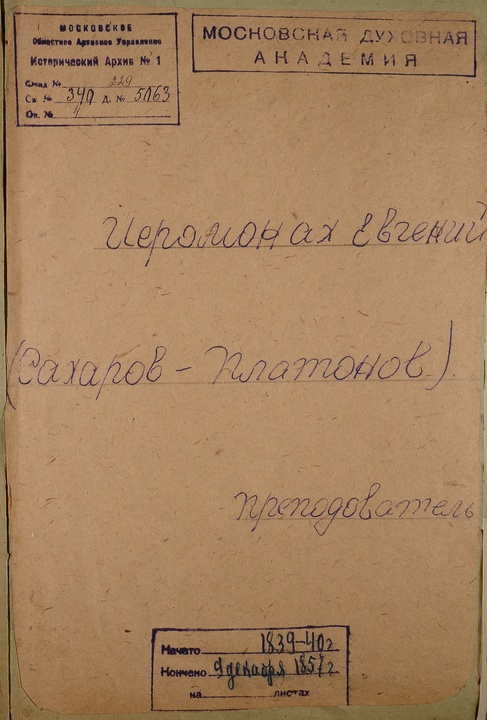 МОСКОВСКОЕ
Областное Архивное Управление
Исторический Архив № 1
Фонд № 229
Св. № 340 Д. № 5163
Оп. № 4
МОСКОВСКАЯ ДУХОВНАЯ
АКАДЕМИЯ
Иеромонах Евгений
(Сахаров - Платонов).
преподаватель
Начато 1839-40 г
Кончено 9 декабря 1857 г
на листах